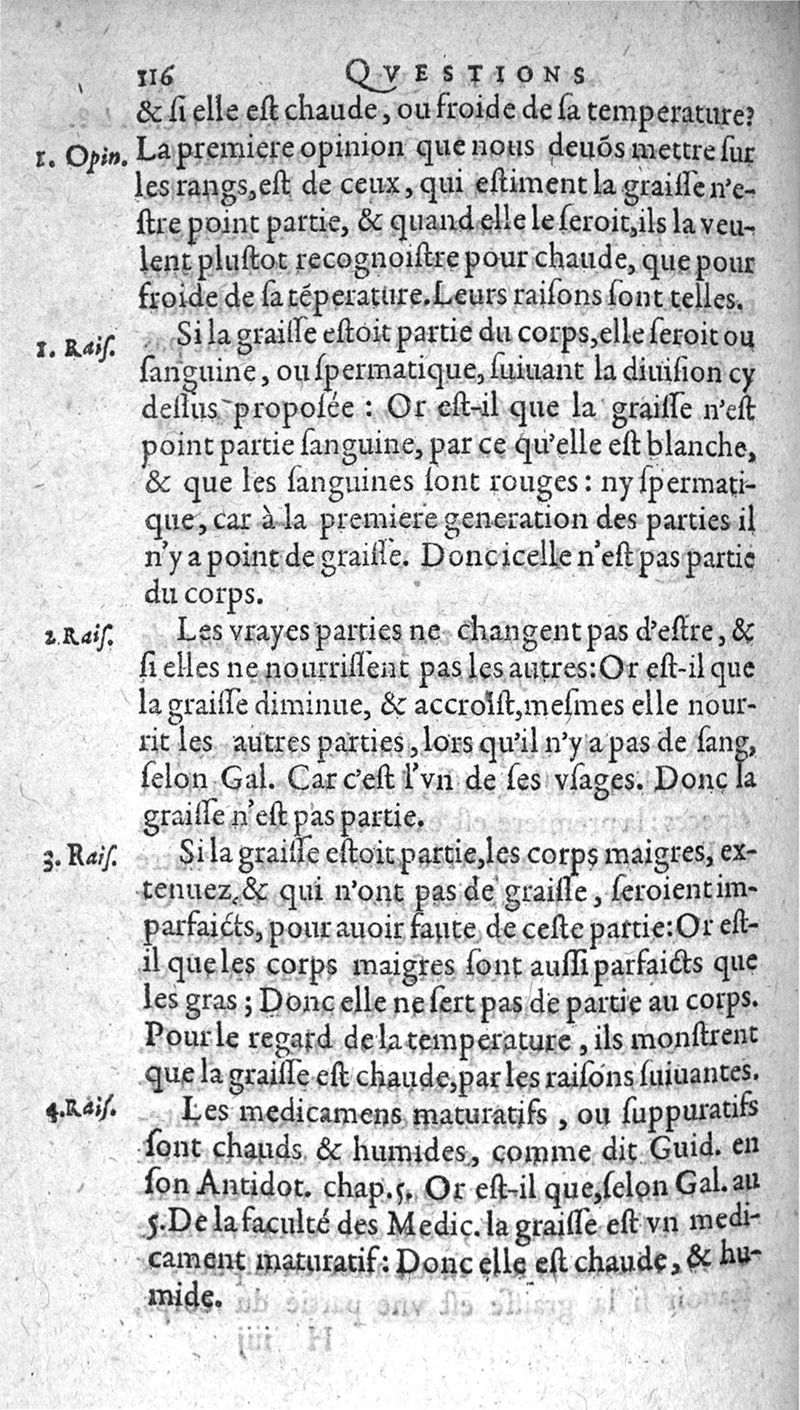 116 QVESTIONS
& ſi elle eſt chaude, ou froide de ſa temperature?
1. Opin. La premiere opinion que nous deuõs mettre ſur
les rangs, eſt de ceux, qui eſtiment la graiſſe n'e-
ſtre point partie, & quand elle le ſeroit, ils la veu-
lent pluſtot recognoiſtre pour chaude, que pour
froide de ſa tẽperature. Leurs raiſons ſont telles.
1. Raiſ. Si la graiſſe eſtoit partie du corps, elle ſeroit ou
ſanguine, ou ſpermatique, ſuiuant la diuiſion cy
deſſus propoſée : Or eſt-il que la graiſſe n'eſt
point partie ſanguine, par ce qu'elle eſt blanche,
& que les ſanguines ſont rouges : ny ſpermati-
que, car à la premiere generation des parties il
n'y a point de graiſſe. Donc icelle n'eſt pas partie
du corps.
2. Raiſ. Les vrayes parties ne changent pas d'eſtre, &
ſi elles ne nourriſſent pas les autres: Or eſt-il que
la graiſſe diminue, & accroiſt, meſmes elle nour-
rit les autres parties, lors qu'il n'y a pas de ſang,
ſelon Gal. Car c'eſt l'vn de ſes vſages. Donc la
graiſſe n'eſt pas partie.
3. Raiſ. Si la graiſſe eſtoit partie, les corps maigres, ex-
tenuez, & qui n'ont pas de graiſſe, ſeroient im-
parfaicts, pour auoir faute de ceſte partie: Or eſt-
il que les corps maigres ſont auſſi parfaicts que
les gras ; Donc elle ne ſert pas de partie au corps.
Pour le regard de la temperature, ils monſtrent
que la graiſſe eſt chaude, par les raiſons ſuiuantes.
4. Raiſ. Les medicamens maturatifs, ou ſuppuratifs
ſont chauds & humides, comme dit Guid. en
ſon Antidot. chap. 5. Or eſt-il que, ſelon Gal. au
5. De la faculté des Medic. la graiſſe eſt vn medi-
cament maturatif: Donc elle eſt chaude, & hu-
mide.